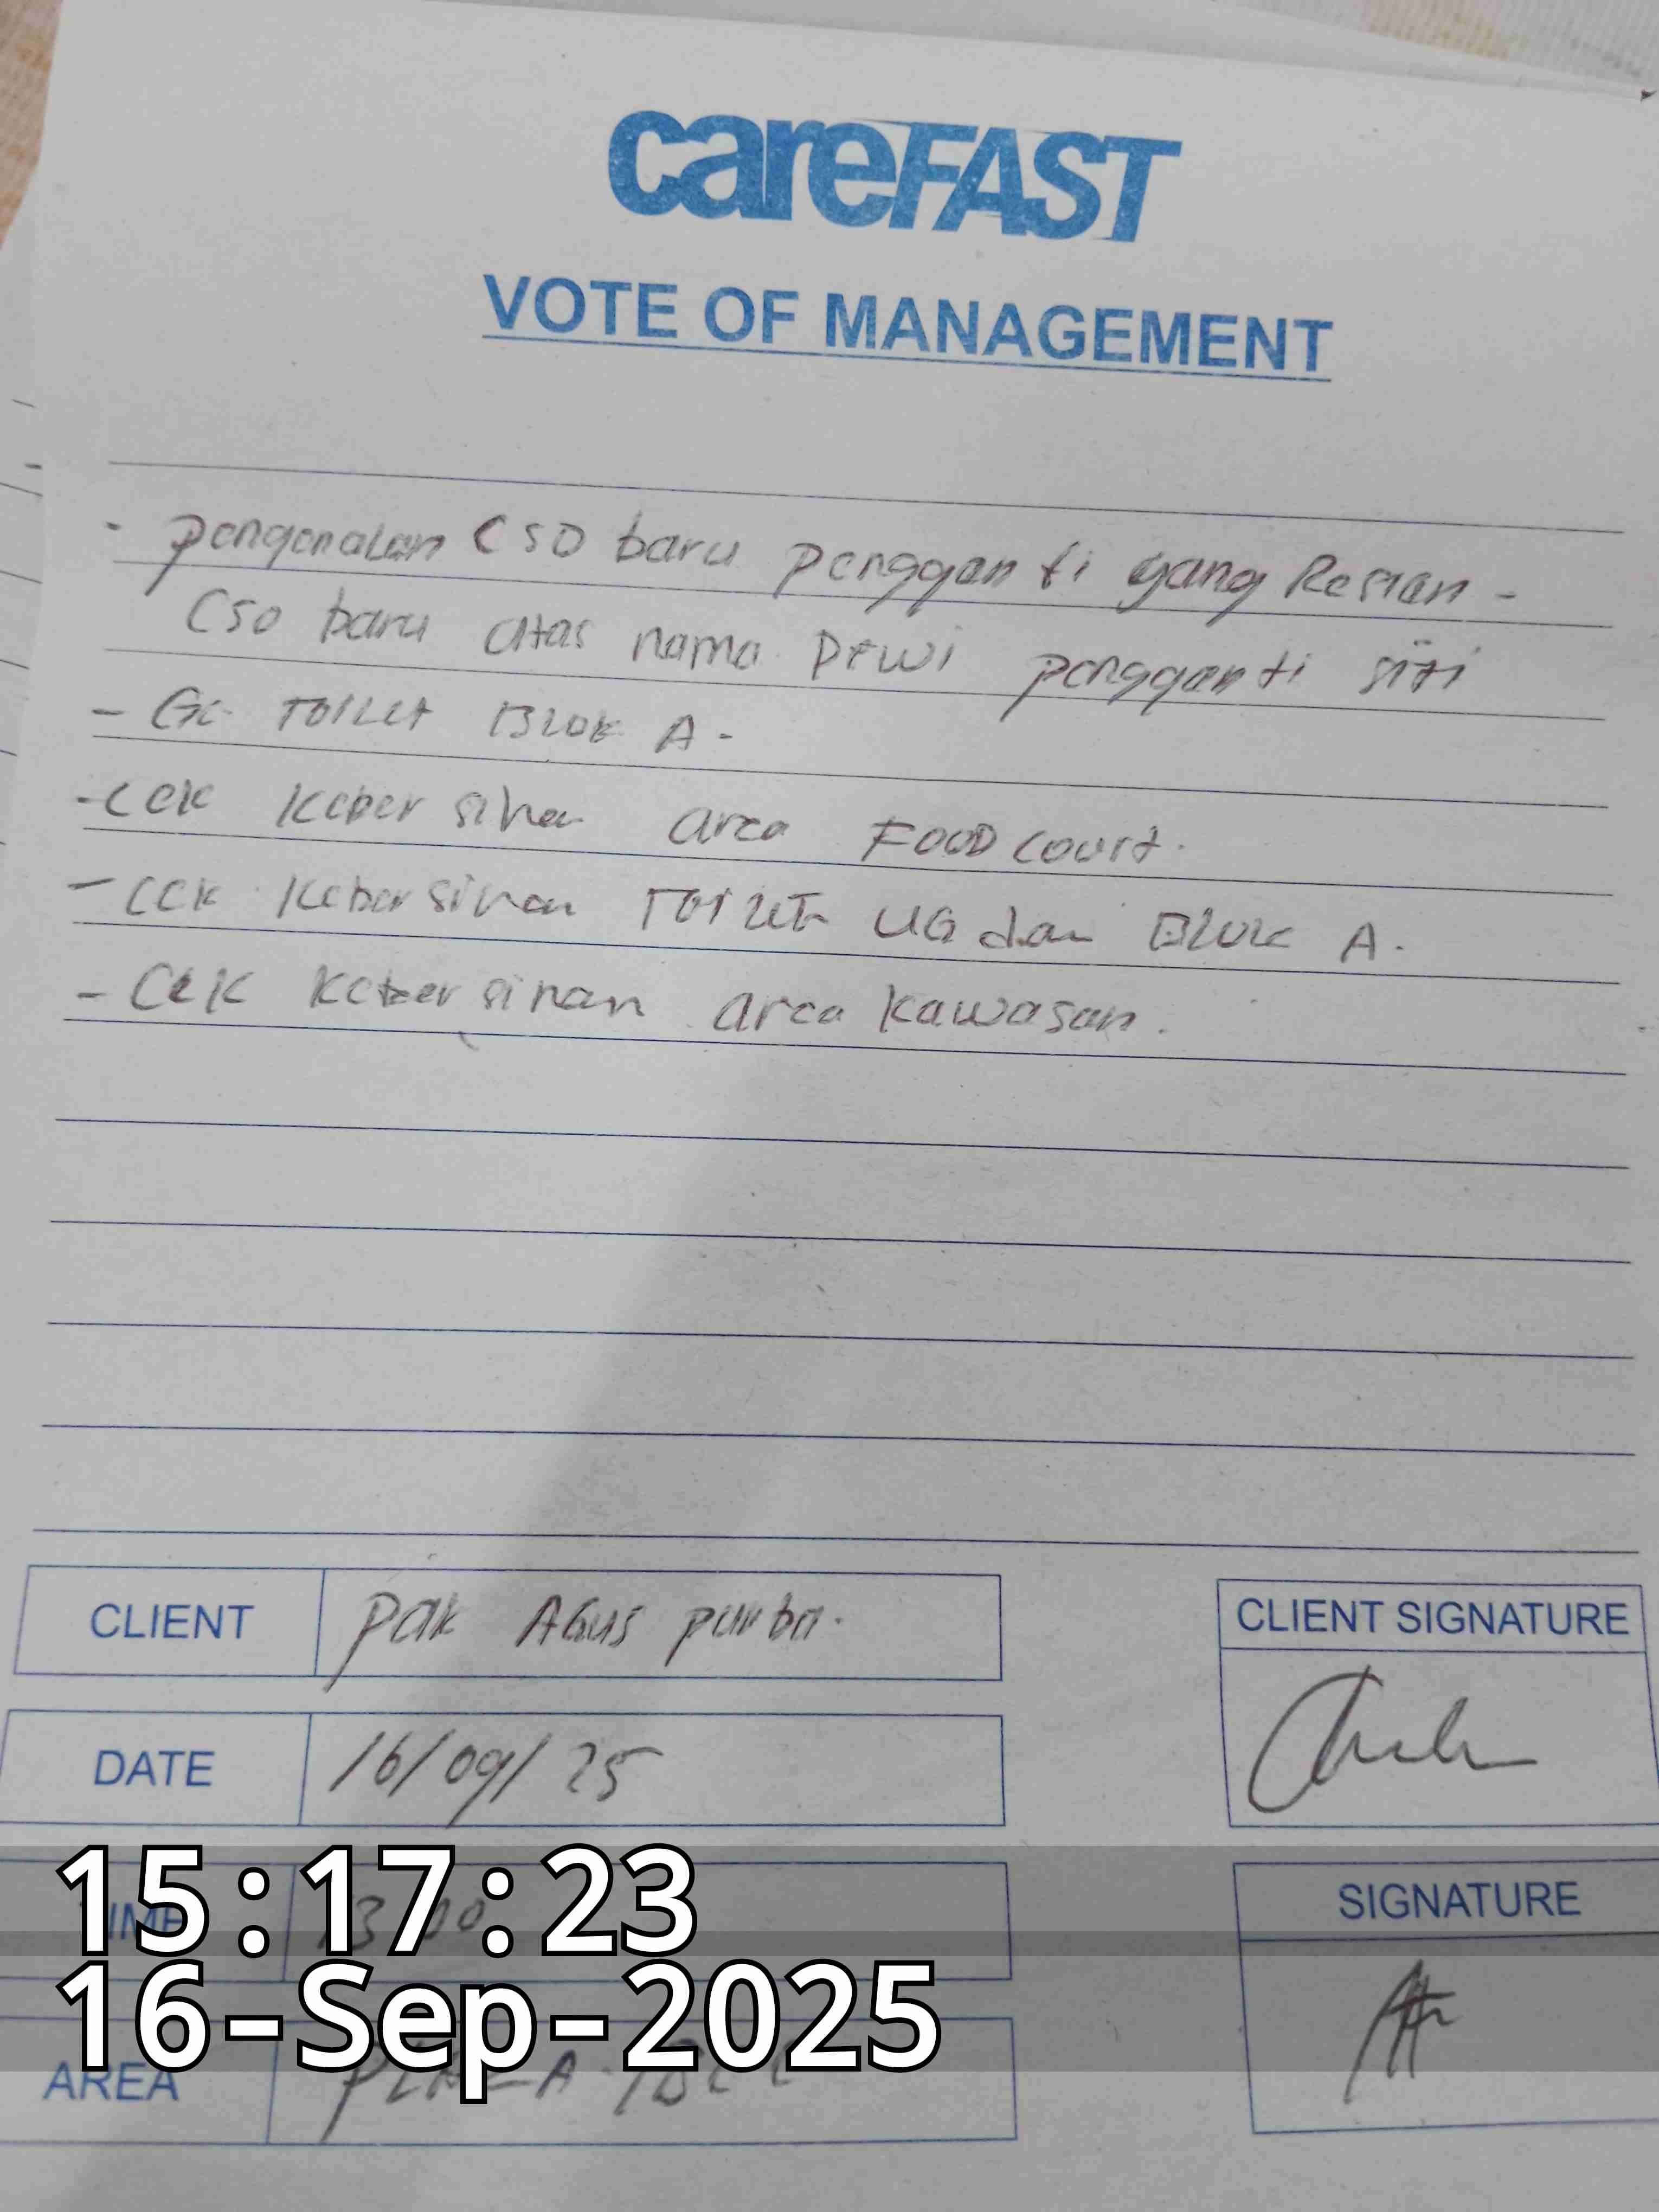 careFAST
VOTE OF MANAGEMENT
- pengenalan CSO baru pengganti yang Resian -
CSO baru atas nama Dewi pengganti siti
- GC TOILET BLOK A -
- Cek Kebersihan area FOOD COURT.
- Cek Kebersihan TOILET UG dan BLOK A.
- Cek Kebersihan area kawasan.
CLIENT pak AGus purba.
CLIENT SIGNATURE
DATE 16/09/25
15:17:23
TIME
SIGNATURE
16-Sep-2025
AREA